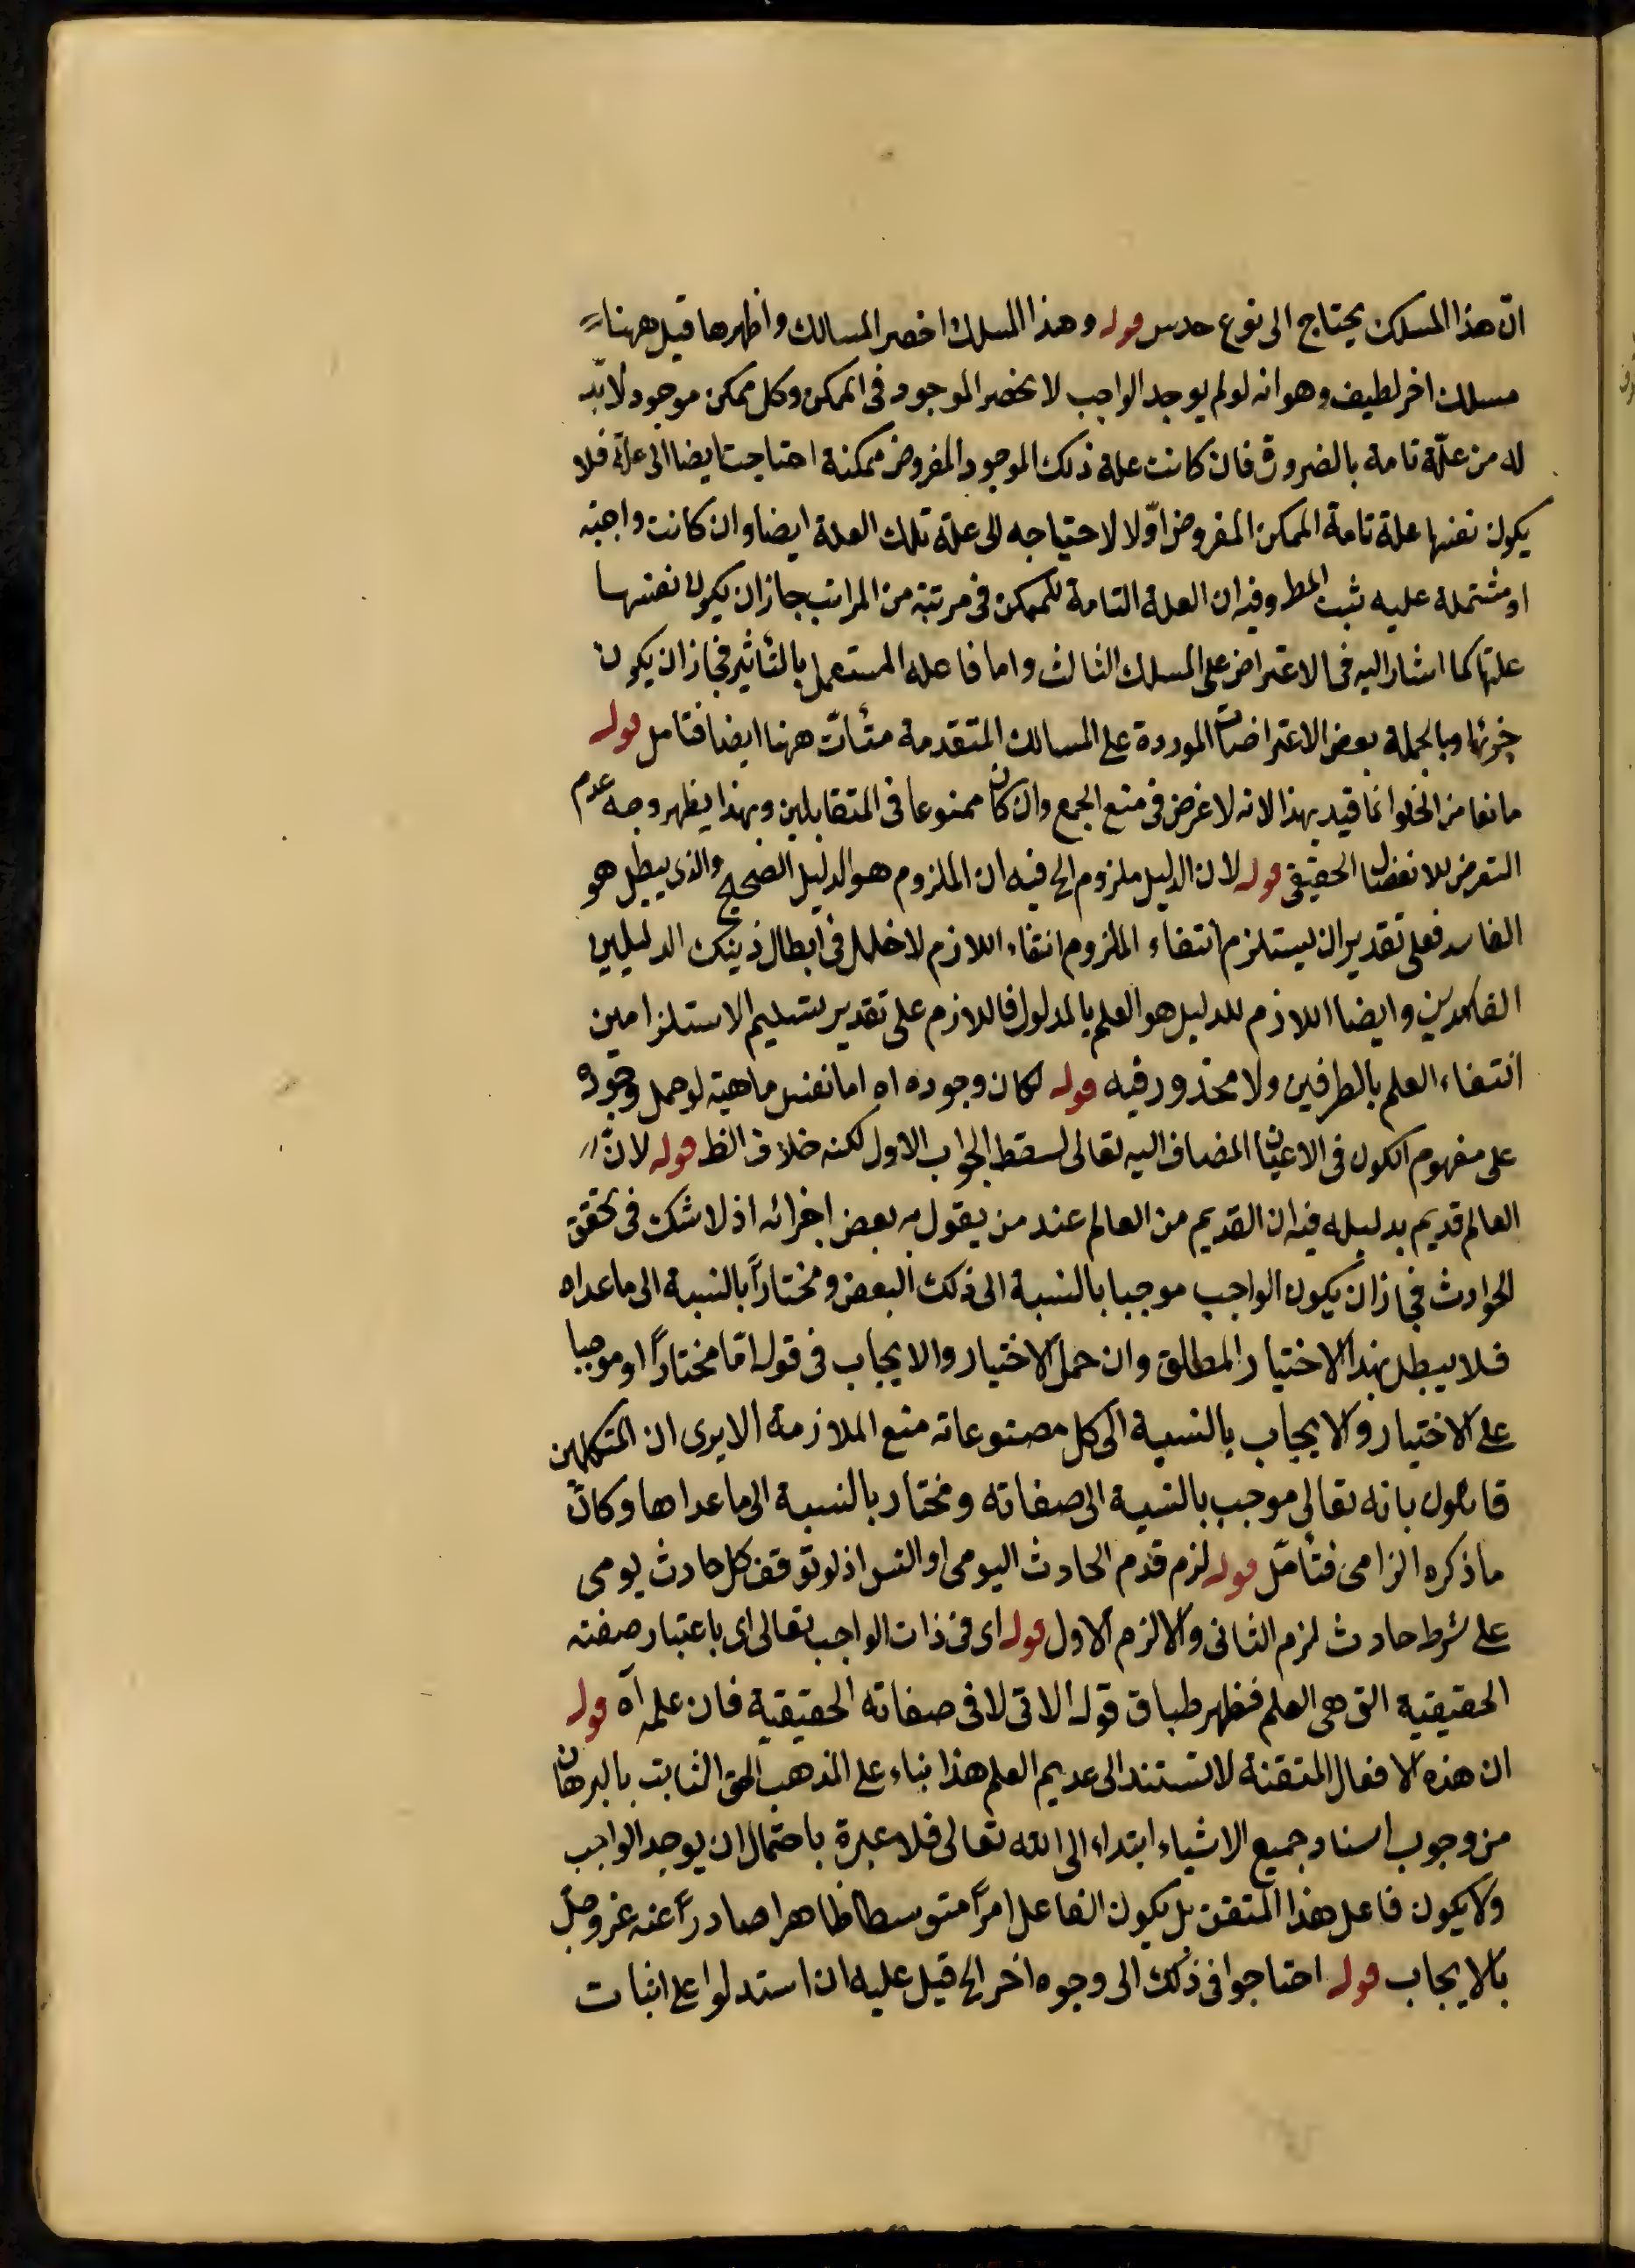 انّ هذا المسلك يحتاج الى نوع حدس قوله وهذا المسلك اخصر المسالك واظهرها قيل ههنا
مسلك اخر لطيف وهو انه لو لم يوجد الواجب لا نحصر الموجود فى الممكن وكل ممكن موجود لا بدّ
له من علّة تامة بالضرورة فان كانت علة ذلك الموجود المفروض ممكنة احتاجت ايضا الى علّة فلا
يكون نفسها علة تامة الممكن المفروض اوّلا لاحتياجه الى علّة تلك العلة ايضا وان كانت واجبة
او مشتملة عليه ثبت المط وفيه ان العلة التامة للممكن فى مرتبة من المراتب جاز ان يكون نفسها
علتها كما اشار اليه فى الاعتراض على المسلك الثالث واما فاعله المستعمل بالتأثير فجاز ان يكون
جزئها وبالجملة بعض الاعتراضات الموردة على المسالك المتقدمة متأتّ ههنا ايضا فتامل قوله
مانعا من الخلو انما قيد بهذا لانه لا غرض فى منع الجمع وان كان ممنوعا فى المتقابلين وبهذا يظهر وجه عدم
التعرض للانفصال الحقيقى قوله لان الدليل ملزوم الخ فيه ان الملزوم هو الدليل الصحيح والذى يبطل هو
الفاسد فعلى تقدير ان يستلزم انتفاء الملزوم انتفاء اللازم لا خلل فى ابطال ذينك الدليلين
الفاسدين وايضا اللازم للدليل هو العلم بالمدلول فاللازم على تقدير تسليم الاستلزامين
انتفاء العلم بالطرفين ولا محذور فيه قوله لكان وجوده اه اما نفس ماهيته لو حمل وجوده
على مفهوم الكون فى الاعيان المضاف اليه تعالى لسقط الجواب الاول لكنه خلاف الظ قوله لانّ
العالم قديم بدليله فيه ان القديم من العالم عند من يقول به بعض اجزائه اذ لا شك فى تحقق
الحوادث فجاز ان يكون الواجب موجبا بالنسبة الى ذلك البعض ومختاراً بالنسبة الى ما عداه
فلا يبطل بهذا الاختيار المطلق وان حمل الاختيار والايجاب فى قوله امّا مختاراً او موجبا
على الاختيار والايجاب بالنسبة الى كل مصنوعاته منع الملازمة الا يرى ان المتكلمين
قائلون بانه تعالى موجب بالنسبة الى صفاته ومختار بالنسبة الى ما عداها وكانّ
ما ذكره الزامى فتأمّل قوله لزم قدم الحادث اليومى او التس اذ لو توقف كل حادث يومى
على شرط حادث لزم الثانى والا لزم الاول قوله اى فى ذات الواجب تعالى اى باعتبار صفته
الحقيقية التى هى العلم فظهر طباق قوله الاتى لا فى صفاته الحقيقية فان علمه آه قوله
ان هذه الافعال المتقنة لا تستند الى عديم العلم هذا بناء على المذهب الحق الثابت بالبرهان
من وجوب اسناد جميع الاشياء ابتداء الى الله تعالى فلا عبرة باحتمال ان يوجد الواجب
ولا يكون فاعل هذا المتقن بل يكون الفاعل امراً متوسطا ظاهرا صادراً عنه عز وجلّ
بالايجاب قوله احتاجوا فى ذلك الى وجوه اخر الخ قيل عليه ان استدلوا على اثبات